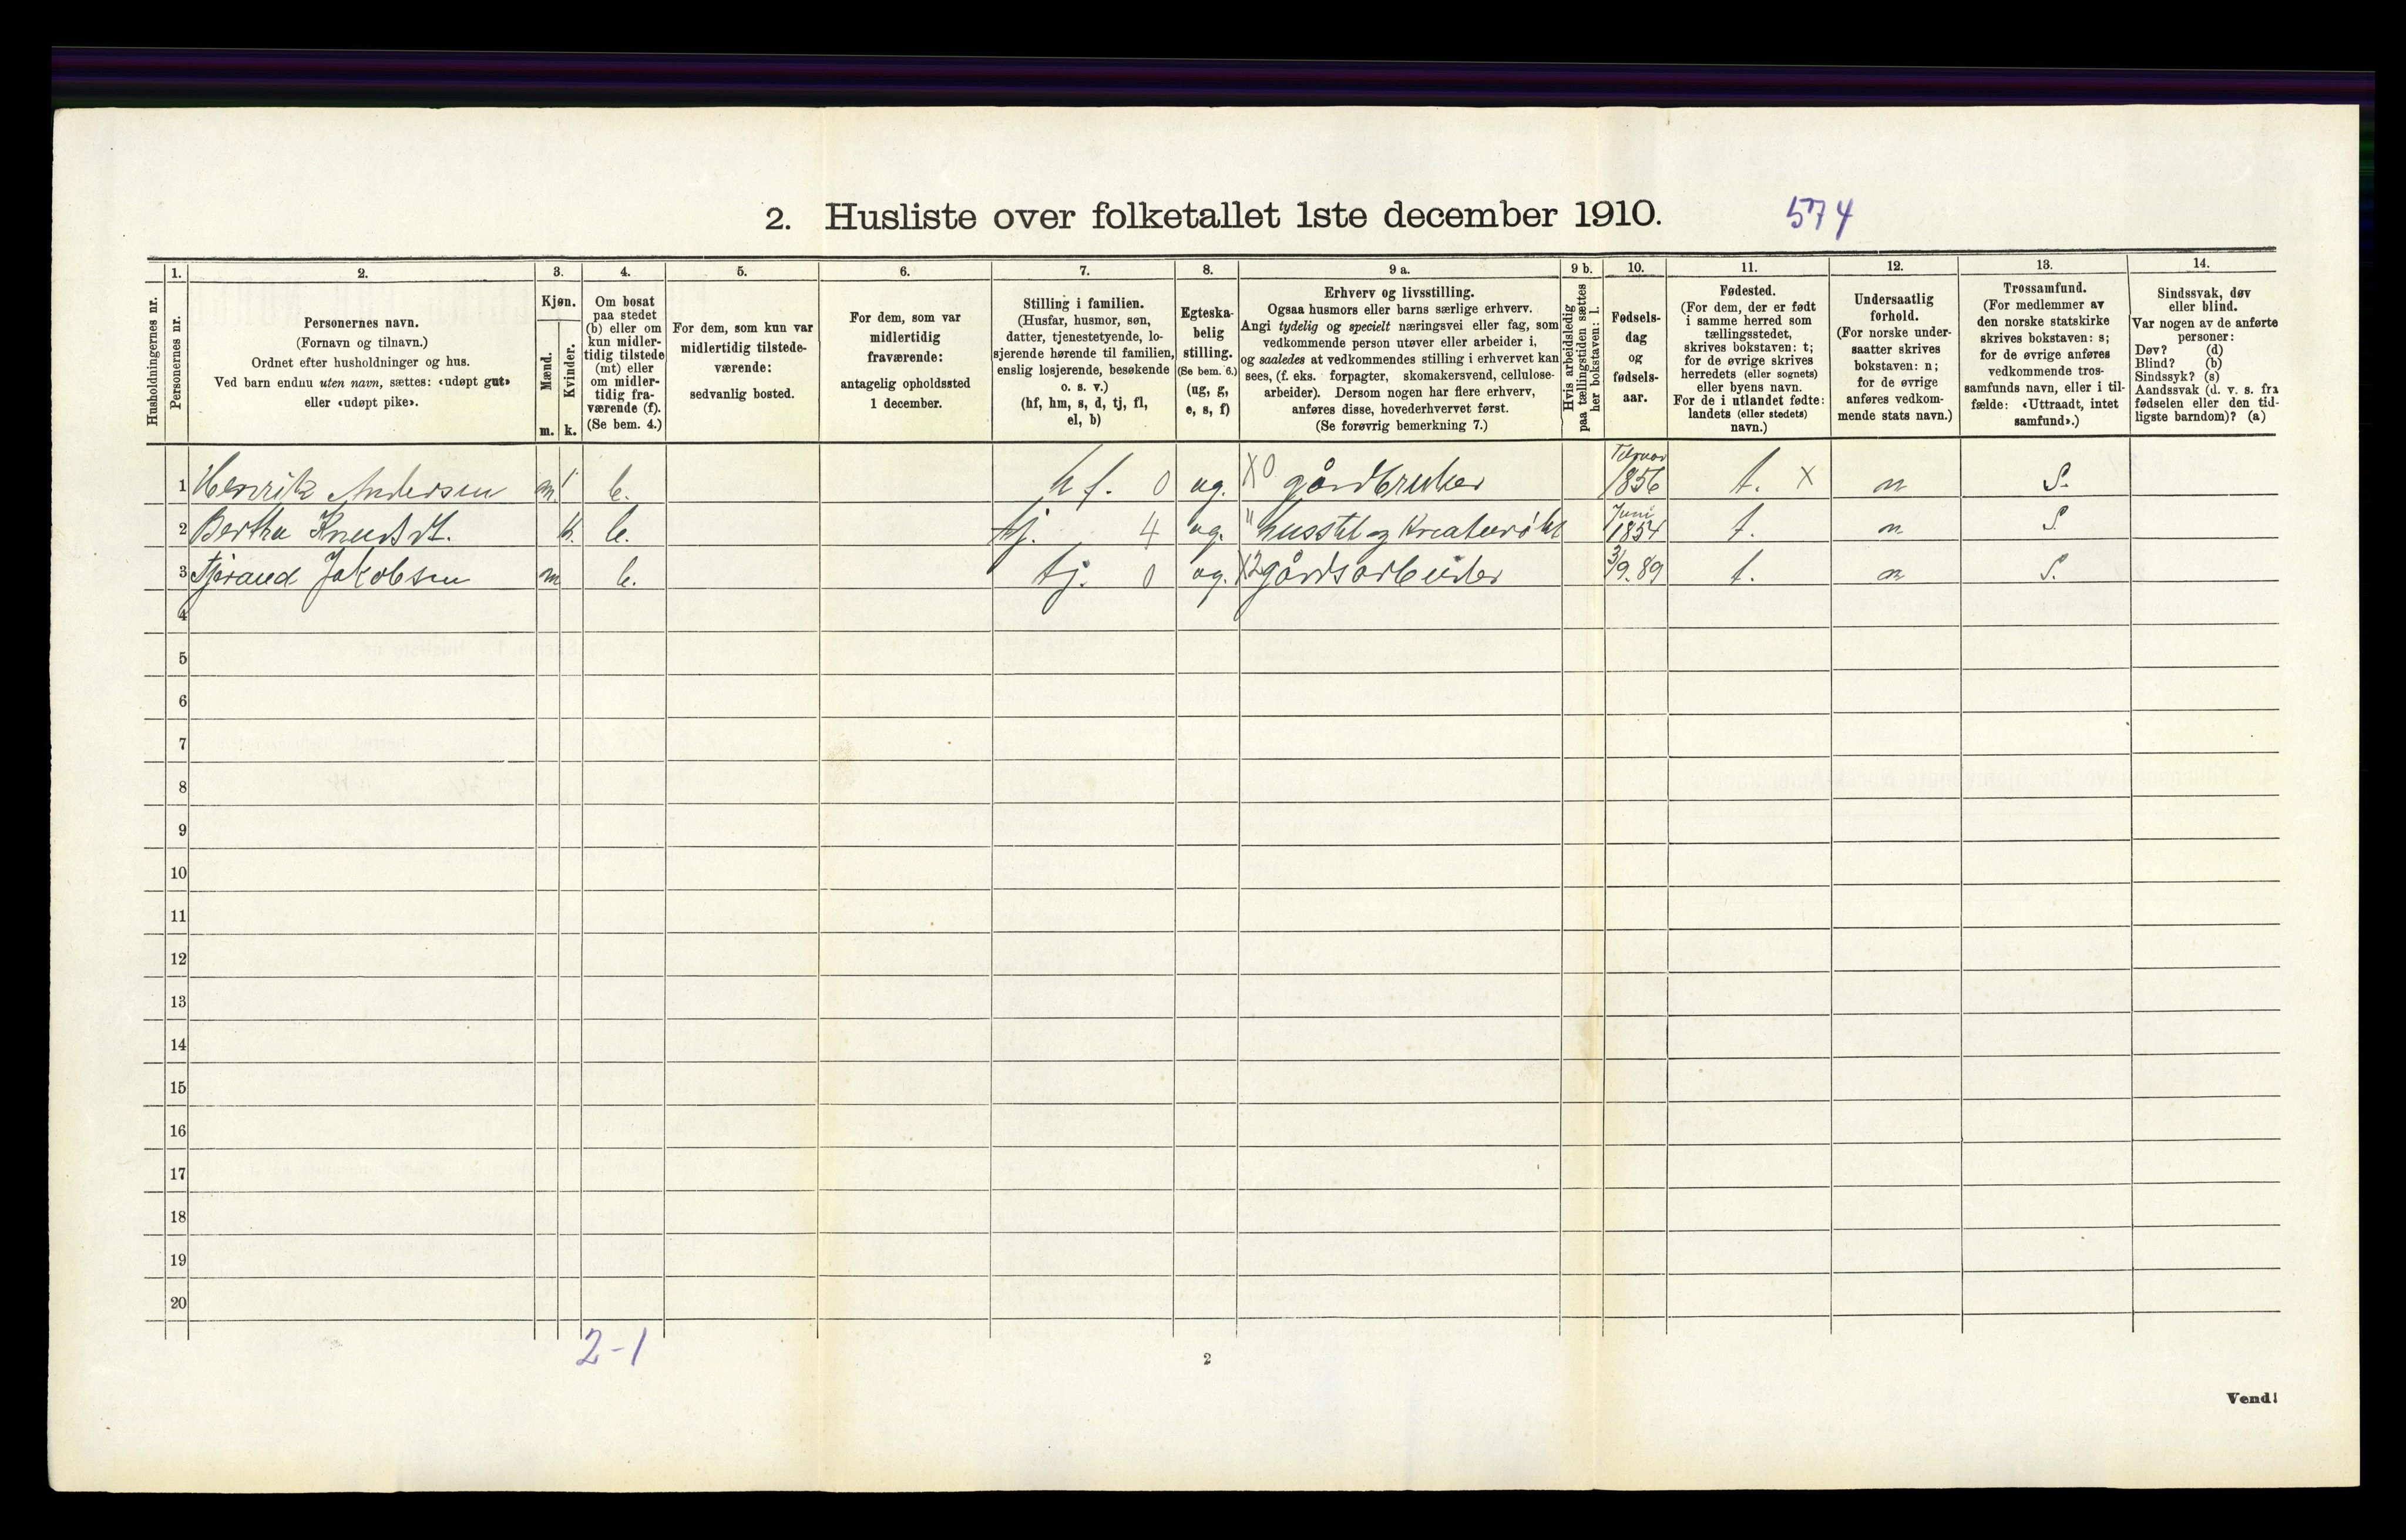 2. Husliste over folketallet 1ste december 1910. 574
Husholdningernes nr.
1.
Personernes nr.
2.
Personernes navn.
(Fornavn og tilnavn.)
Ordnet efter husholdninger og hus.
Ved barn endnu uten navn, sættes: «udøpt gut»
eller «udøpt pike».
3.
Kjøn.
Mænd.
Kvinder.
m. k.
4.
Om bosat
paa stedet
(b) eller om
kun midler-
tidig tilstede
(mt) eller
om midler-
tidig fra-
værende (f).
(Se bem. 4.)
5.
For dem, som kun var
midlertidig tilstede-
værende:
sedvanlig bosted.
6.
For dem, som var
midlertidig
fraværende:
antagelig opholdssted
1 december.
7.
Stilling i familien.
(Husfar, husmor, søn,
datter, tjenestetyende, lo-
sjerende hørende til familien,
enslig losjerende, besøkende
o. s. v.)
(hf, hm, s, d, tj, fl,
el, b)
8.
Egteska-
belig
stilling.
(Se bem. 6.)
(ug, g,
e, s, f)
9 a.
Erhverv og livsstilling.
Ogsaa husmors eller barns særlige erhverv.
Angi tydelig og specielt næringsvei eller fag, som
vedkommende person utøver eller arbeider i,
og saaledes at vedkommendes stilling i erhvervet kan
sees, (f. eks. forpagter, skomakersvend, cellulose-
arbeider). Dersom nogen har flere erhverv,
anføres disse, hovederhvervet først.
(Se forøvrig bemerkning 7.)
9 b.
Hvis arbeidsledig
paa tællingstiden sættes
her bokstaven: l.
10.
Fødsels-
dag
og
fødsels-
aar.
11.
Fødested.
(For dem, der er født
i samme herred som
tællingsstedet,
skrives bokstaven: t;
for de øvrige skrives
herredets (eller sognets)
eller byens navn.
For de i utlandet fødte:
landets (eller stedets)
navn.)
12.
Undersaatlig
forhold.
(For norske under-
saatter skrives
bokstaven: n;
for de øvrige
anføres vedkom-
mende stats navn.)
13.
Trossamfund.
(For medlemmer av
den norske statskirke
skrives bokstaven: s;
for de øvrige anføres
vedkommende tros-
samfunds navn, eller i til-
fælde: «Uttraadt, intet
samfund».)
14.
Sindssvak, døv
eller blind.
Var nogen av de anførte
personer:
Døv? (d)
Blind? (b)
Sindssyk? (s)
Aandssvak (d. v. s. fra
fødselen eller den tid-
ligste barndom)? (a)
1 Henrik Andersen m 1 b. hf. 0 ug. X0 gårdbruker Februar 1856 t. X n S.
2 Bertha Knudsdt. k. b. tj. 4 ug. " husstel og Kreaturrøkt Juni 1854 t. n S.
3 Tjeraud Jakobsen m b. tj. 0 ug. X2 gårdsarbeider 3/9.89 t. n S.
4
5
6
7
8
9
10
11
12
13
14
15
16
17
18
19
20
2-1
2
Vend!